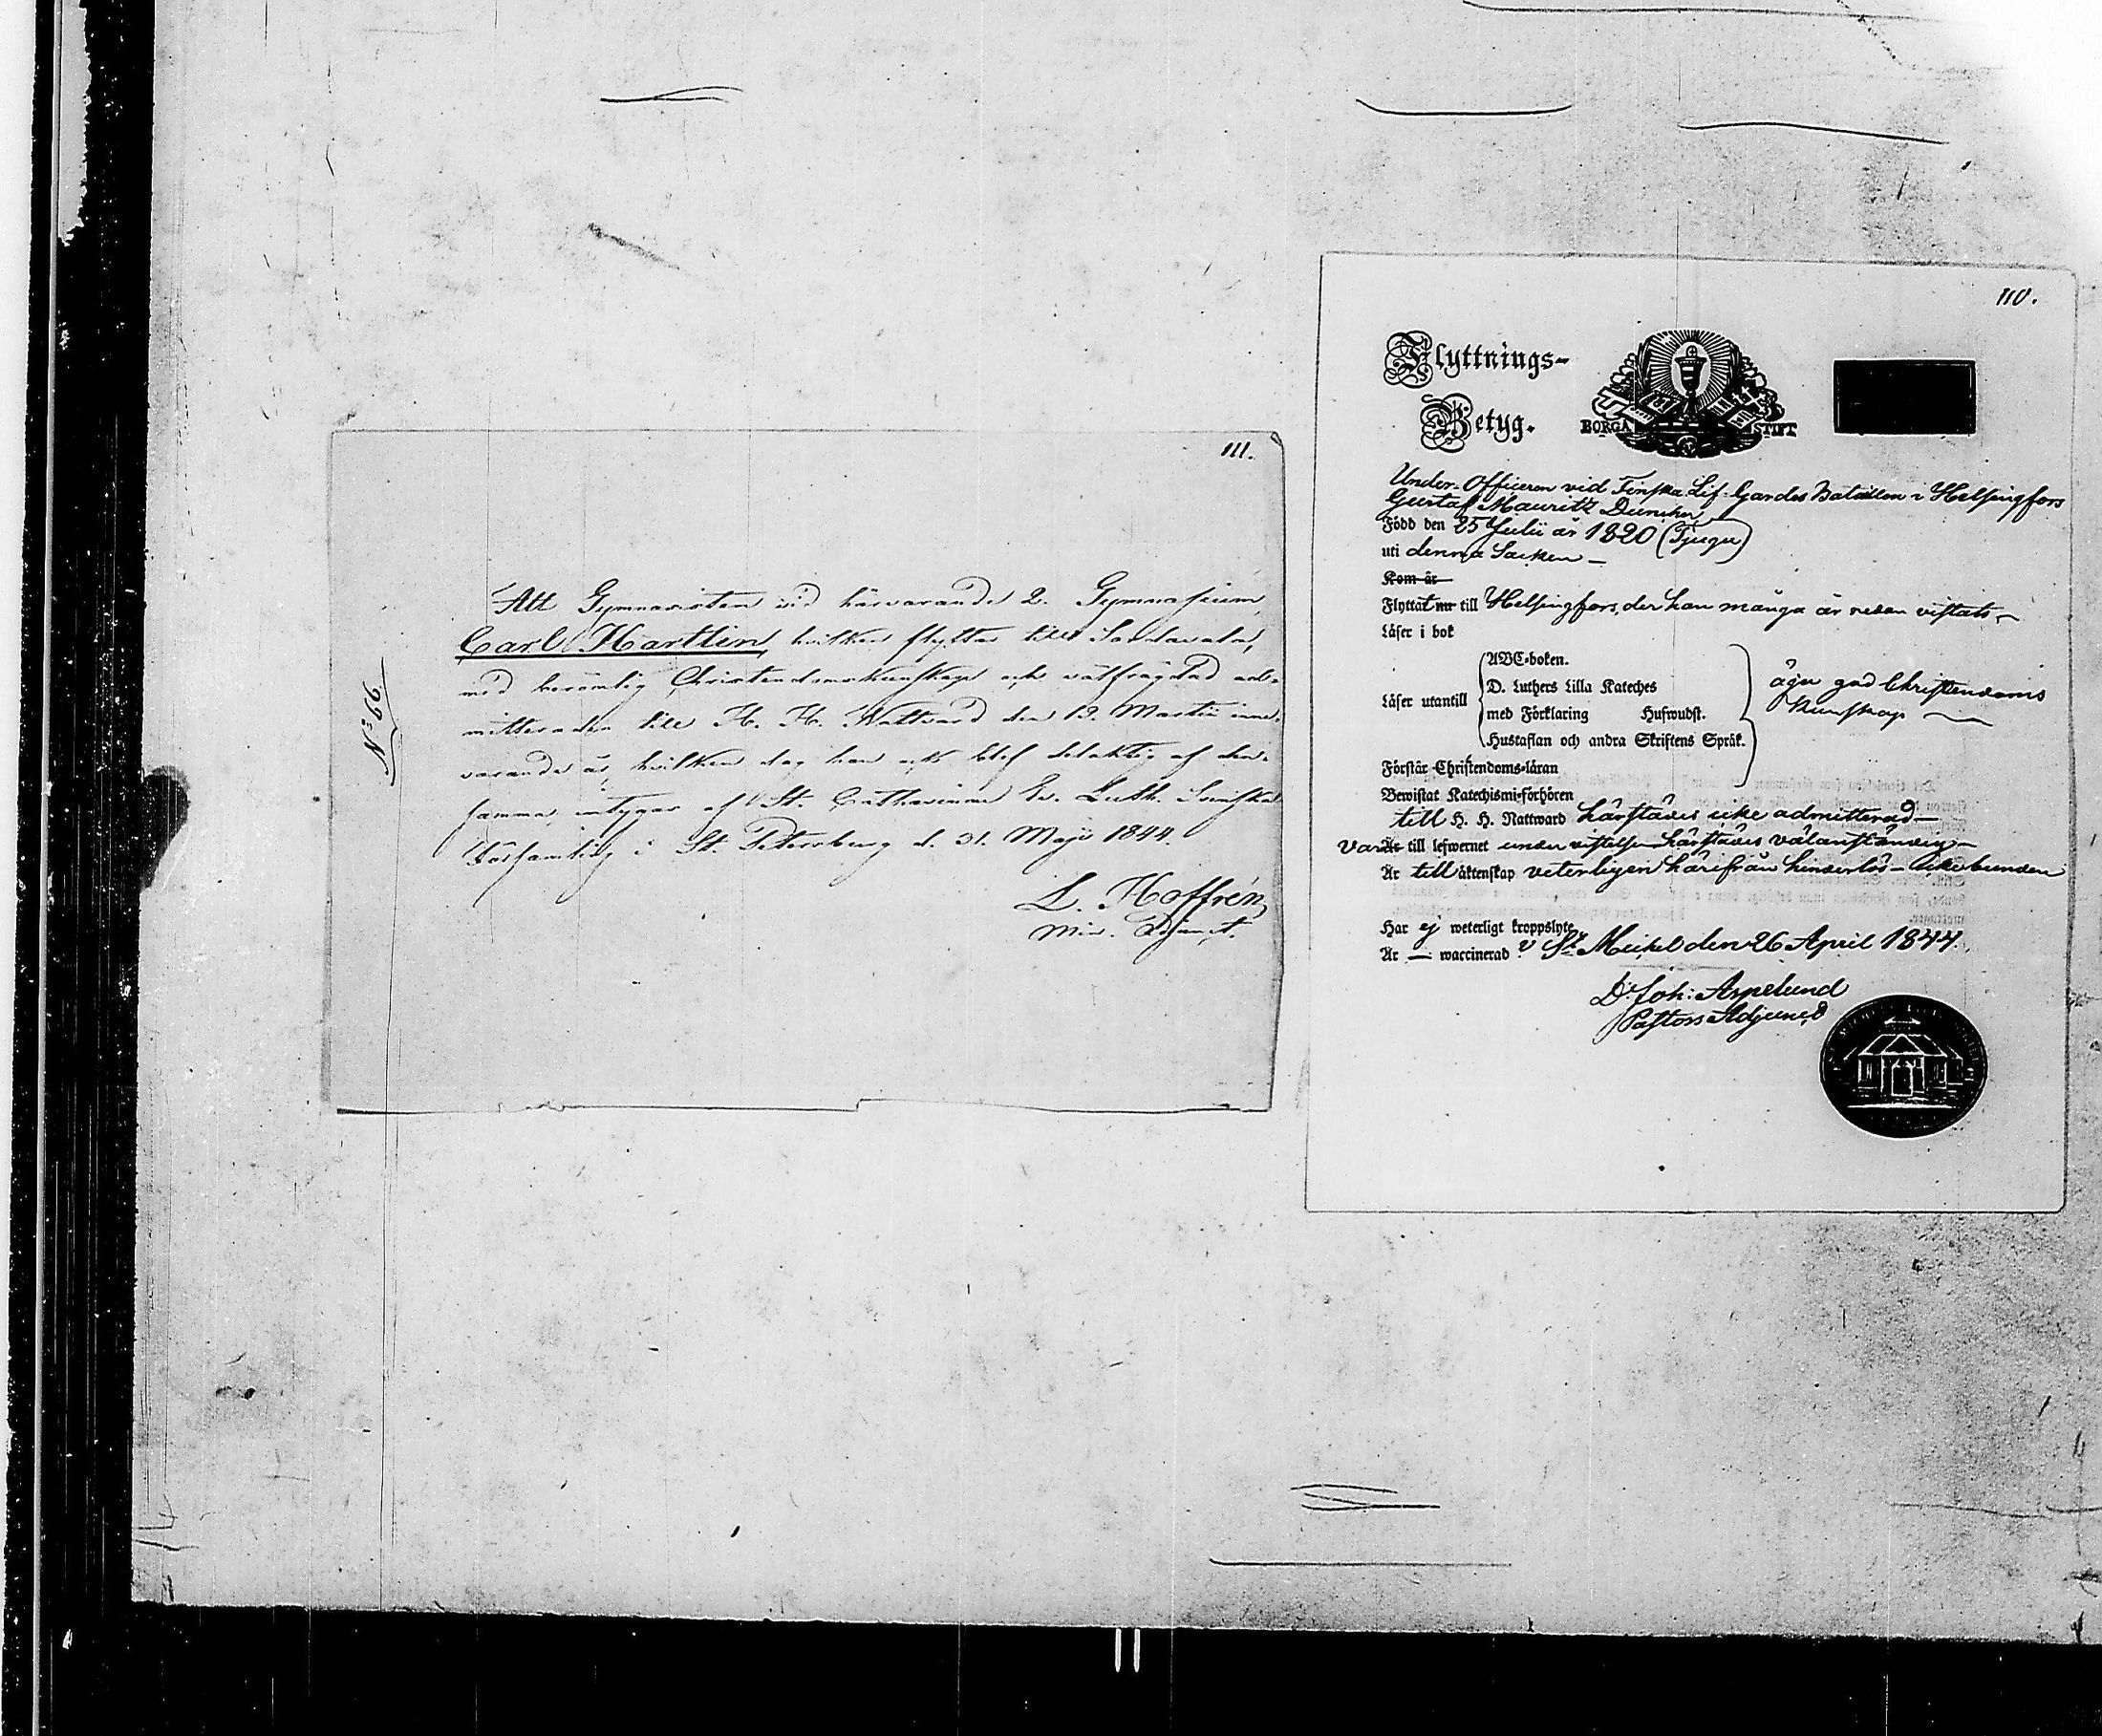 111.
N:o 66.
Att Gymnasisten vid härvarande 2. Gymnasium,
Carl Hartlin, hvilken flyttar till Sordavala,
med berömlig Christendomskunskap och välfrägdad ad-
mitterades till H. H. Nattvard den 13. Martii inne-
varande år, hvilken dag han ock blef delaktig af den-
samma, intygar af St. Catharinæ Ev. Luth. Svenska
Församling i St. Petersburg d. 31. Maji 1844.
L. Hoffrén
Min. Adjunct.
110.
Flyttnings-
Betyg.
BORGÅ STIFT
Under-Officeren vid Finska Lif-Gardes Bataillon i Helsingfors
Gustaf Mauritz Duncker
Född den 25 Julii år 1820 (Tjugu)
uti denna Socken –
Kom år
Flyttat nu till Helsingfors, der han många år redan vistats –
Läser i bok
Läser utantill
ABC-boken.
D. Luthers Lilla Kateches
med Förklaring Hufwudst.
Hustaflan och andra Skriftens Språk.
äger god Christendoms
kunskap
Förstår Christendoms-läran
Bewistat Katechismi-förhören
till H. H. Nattward härstädes icke admitterad –
Var Är till lefwernet under vistelsen härstädes välanständig –
Är till äktenskap veterligen härifrån hinderlös – icke bunden
Har ej weterligt kroppslyte
Är — waccinerad ? St Michel den 26 April 1844.
D. Joh: Aspelund
Pastors Adjunct